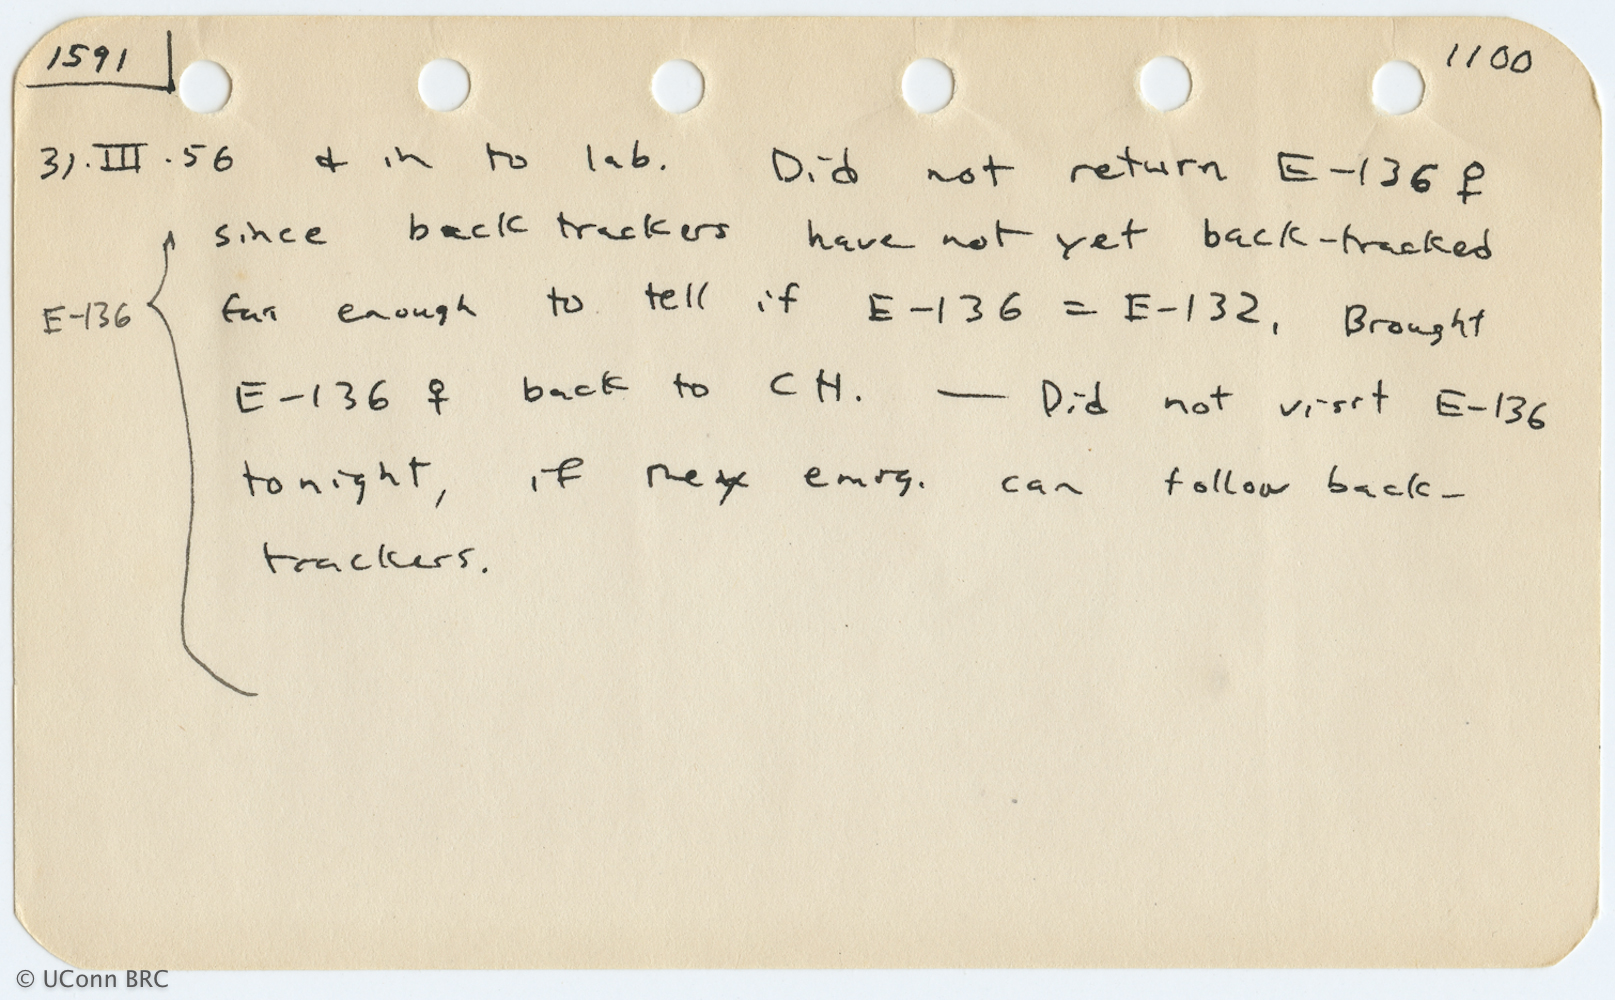 1591
1100
31.III.56 & in to lab. Did not return E-136 ♀
since back trackers have not yet back-tracked
E-136
far enough to tell if E-136 = E-132. Brought
E-136 ♀ back to CH. — Did not visit E-136
tonight, if they emrg. can follow back-
trackers.
© UConn BRC